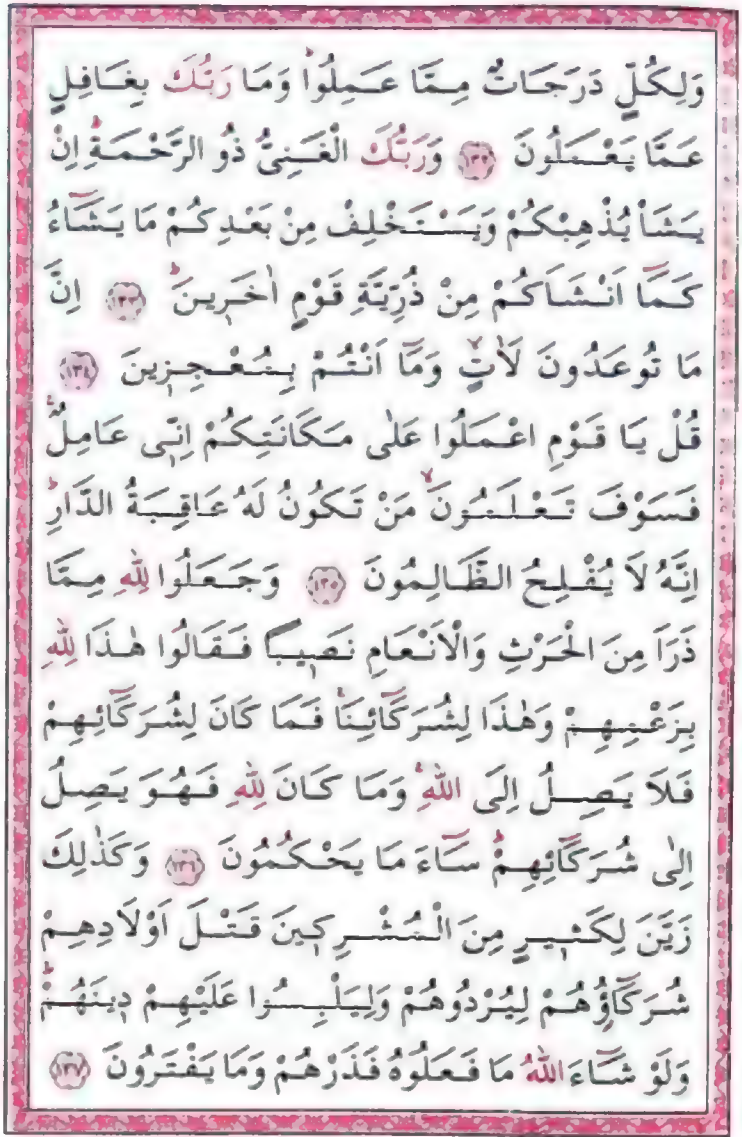 وَلِكُلٍّ دَرَجَاتٌ مِمَّا عَمِلُواۜ وَمَا رَبُّكَ بِغَافِلٍ
عَمَّا يَعْمَلُونَ ﴿١٣٢﴾ وَرَبُّكَ الْغَنِىُّ ذُو الرَّحْمَةِۜ اِنْ
يَشَأْ يُذْهِبْكُمْ وَيَسْتَخْلِفْ مِنْ بَعْدِكُمْ مَا يَشَٓاءُ
كَمَٓا اَنْشَاَكُمْ مِنْ ذُرِّيَّةِ قَوْمٍ اٰخَر۪ينَۜ ﴿١٣٣﴾ اِنَّ
مَا تُوعَدُونَ لَاٰتٍۙ وَمَٓا اَنْتُمْ بِمُعْجِز۪ينَ ﴿١٣٤﴾
قُلْ يَا قَوْمِ اعْمَلُوا عَلٰى مَكَانَتِكُمْ اِنّ۪ى عَامِلٌۚ
فَسَوْفَ تَعْلَمُونَۙ مَنْ تَكُونُ لَهُ عَاقِبَةُ الدَّارِۜ
اِنَّهُ لَا يُفْلِحُ الظَّالِمُونَ ﴿١٣٥﴾ وَجَعَلُوا لِلّٰهِ مِمَّا
ذَرَاَ مِنَ الْحَرْثِ وَالْاَنْعَامِ نَص۪يبًا فَقَالُوا هٰذَا لِلّٰهِ
بِزَعْمِهِمْ وَهٰذَا لِشُرَكَٓائِنَاۚ فَمَا كَانَ لِشُرَكَٓائِهِمْ
فَلَا يَصِلُ اِلَى اللّٰهِۚ وَمَا كَانَ لِلّٰهِ فَهُوَ يَصِلُ
اِلٰى شُرَكَٓائِهِمْۜ سَٓاءَ مَا يَحْكُمُونَ ﴿١٣٦﴾ وَكَذٰلِكَ
زَيَّنَ لِكَث۪يرٍ مِنَ الْمُشْرِك۪ينَ قَتْلَ اَوْلَادِهِمْ
شُرَكَٓاؤُ۬هُمْ لِيُرْدُوهُمْ وَلِيَلْبِسُوا عَلَيْهِمْ د۪ينَهُمْۜ
وَلَوْ شَٓاءَ اللّٰهُ مَا فَعَلُوهُ فَذَرْهُمْ وَمَا يَفْتَرُونَ ﴿١٣٧﴾